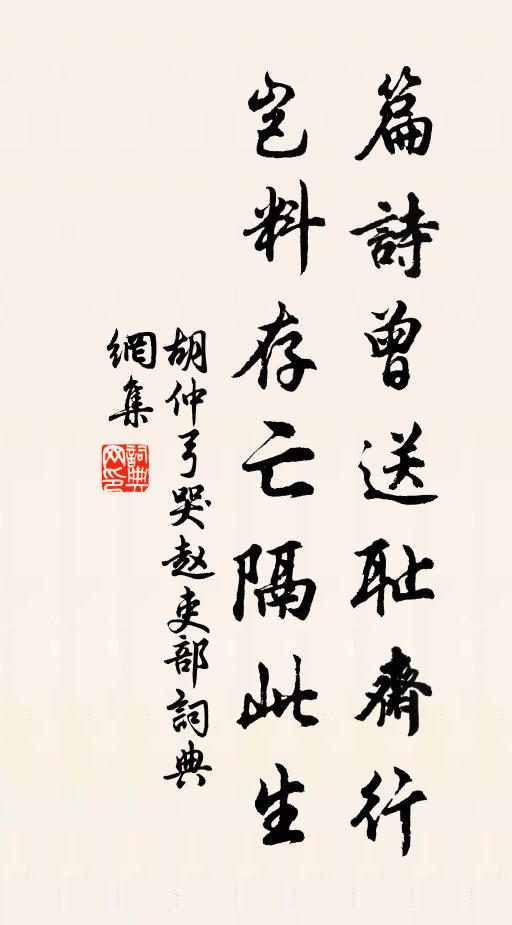 篇詩曾送耻齋行
豈料存亡隔此生
胡仲弓哭赵吏部詞典
網集
詞典
网印